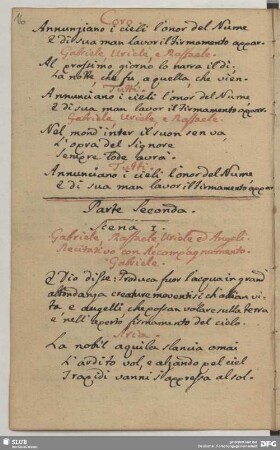 16
Coro
Annunziano i cieli l'onor del Nume
E di sua man lavor il Firmamento appar.
Gabriele, Uriele, e Raffaele.
Al prossimo giorno lo narra il dì.
La notte che fu, a quella che vien.
Tutti.
Annunciano i cieli l'onor del Nume
E di sua man lavor il Firmamento appar.
Gabriele, Uriele, e Raffaele.
Nel mond' inter il suon sen va
L'opra del Signore
Sempre lode avrà.
Tutti.
Annunciano i cieli l'onor del Nume
E di sua man lavor il Firmamento appar
Parte Seconda.
Scena 1.
Gabriele, Raffaele Uriele ed Angeli.
Recitativo con Accompagnamento.
Gabriele.
E Dio disse: Produca fuor l'acqua in grand'
abbondanza creature moventisi ch' abbian vi-
ta e augelli che possan volare sulla terra
e nell' aperto firmamento del cielo.
Aria.
La nobil aquila slancia omai
L'ardito vol, e alzando pel ciel
I rapidi vanni s'appressa al sol-
SLUB